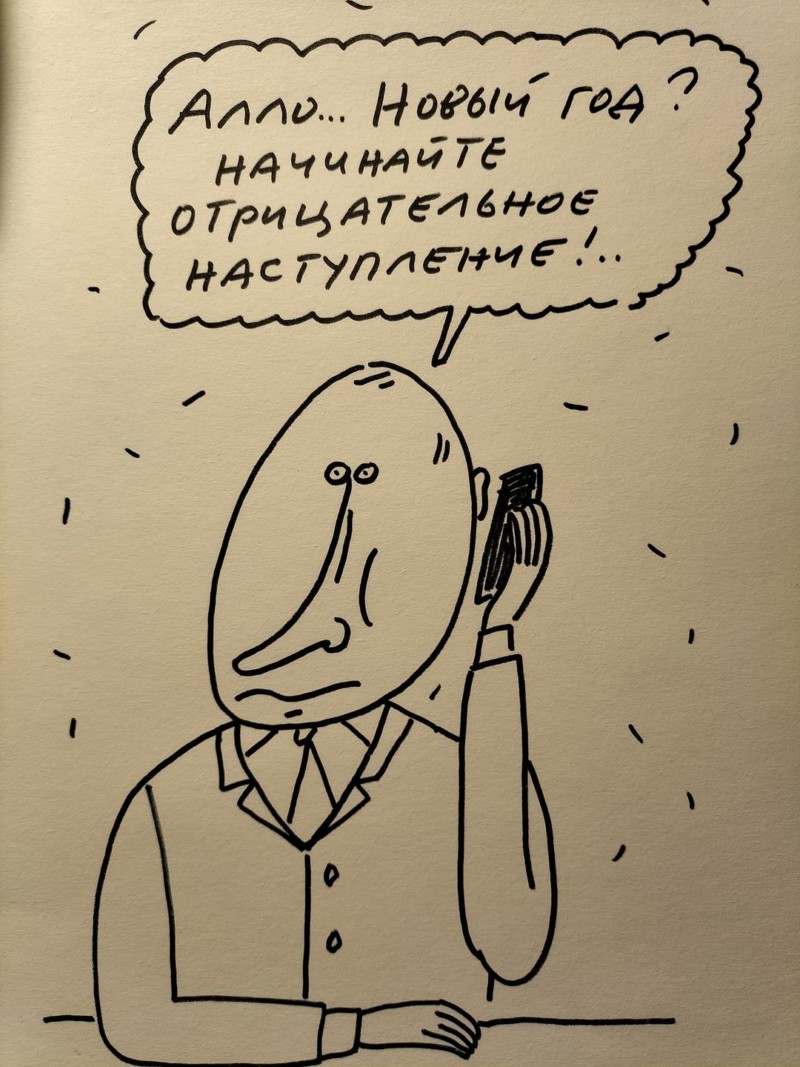 Алло... Новый год?
начинайте
отрицательное
наступление!..